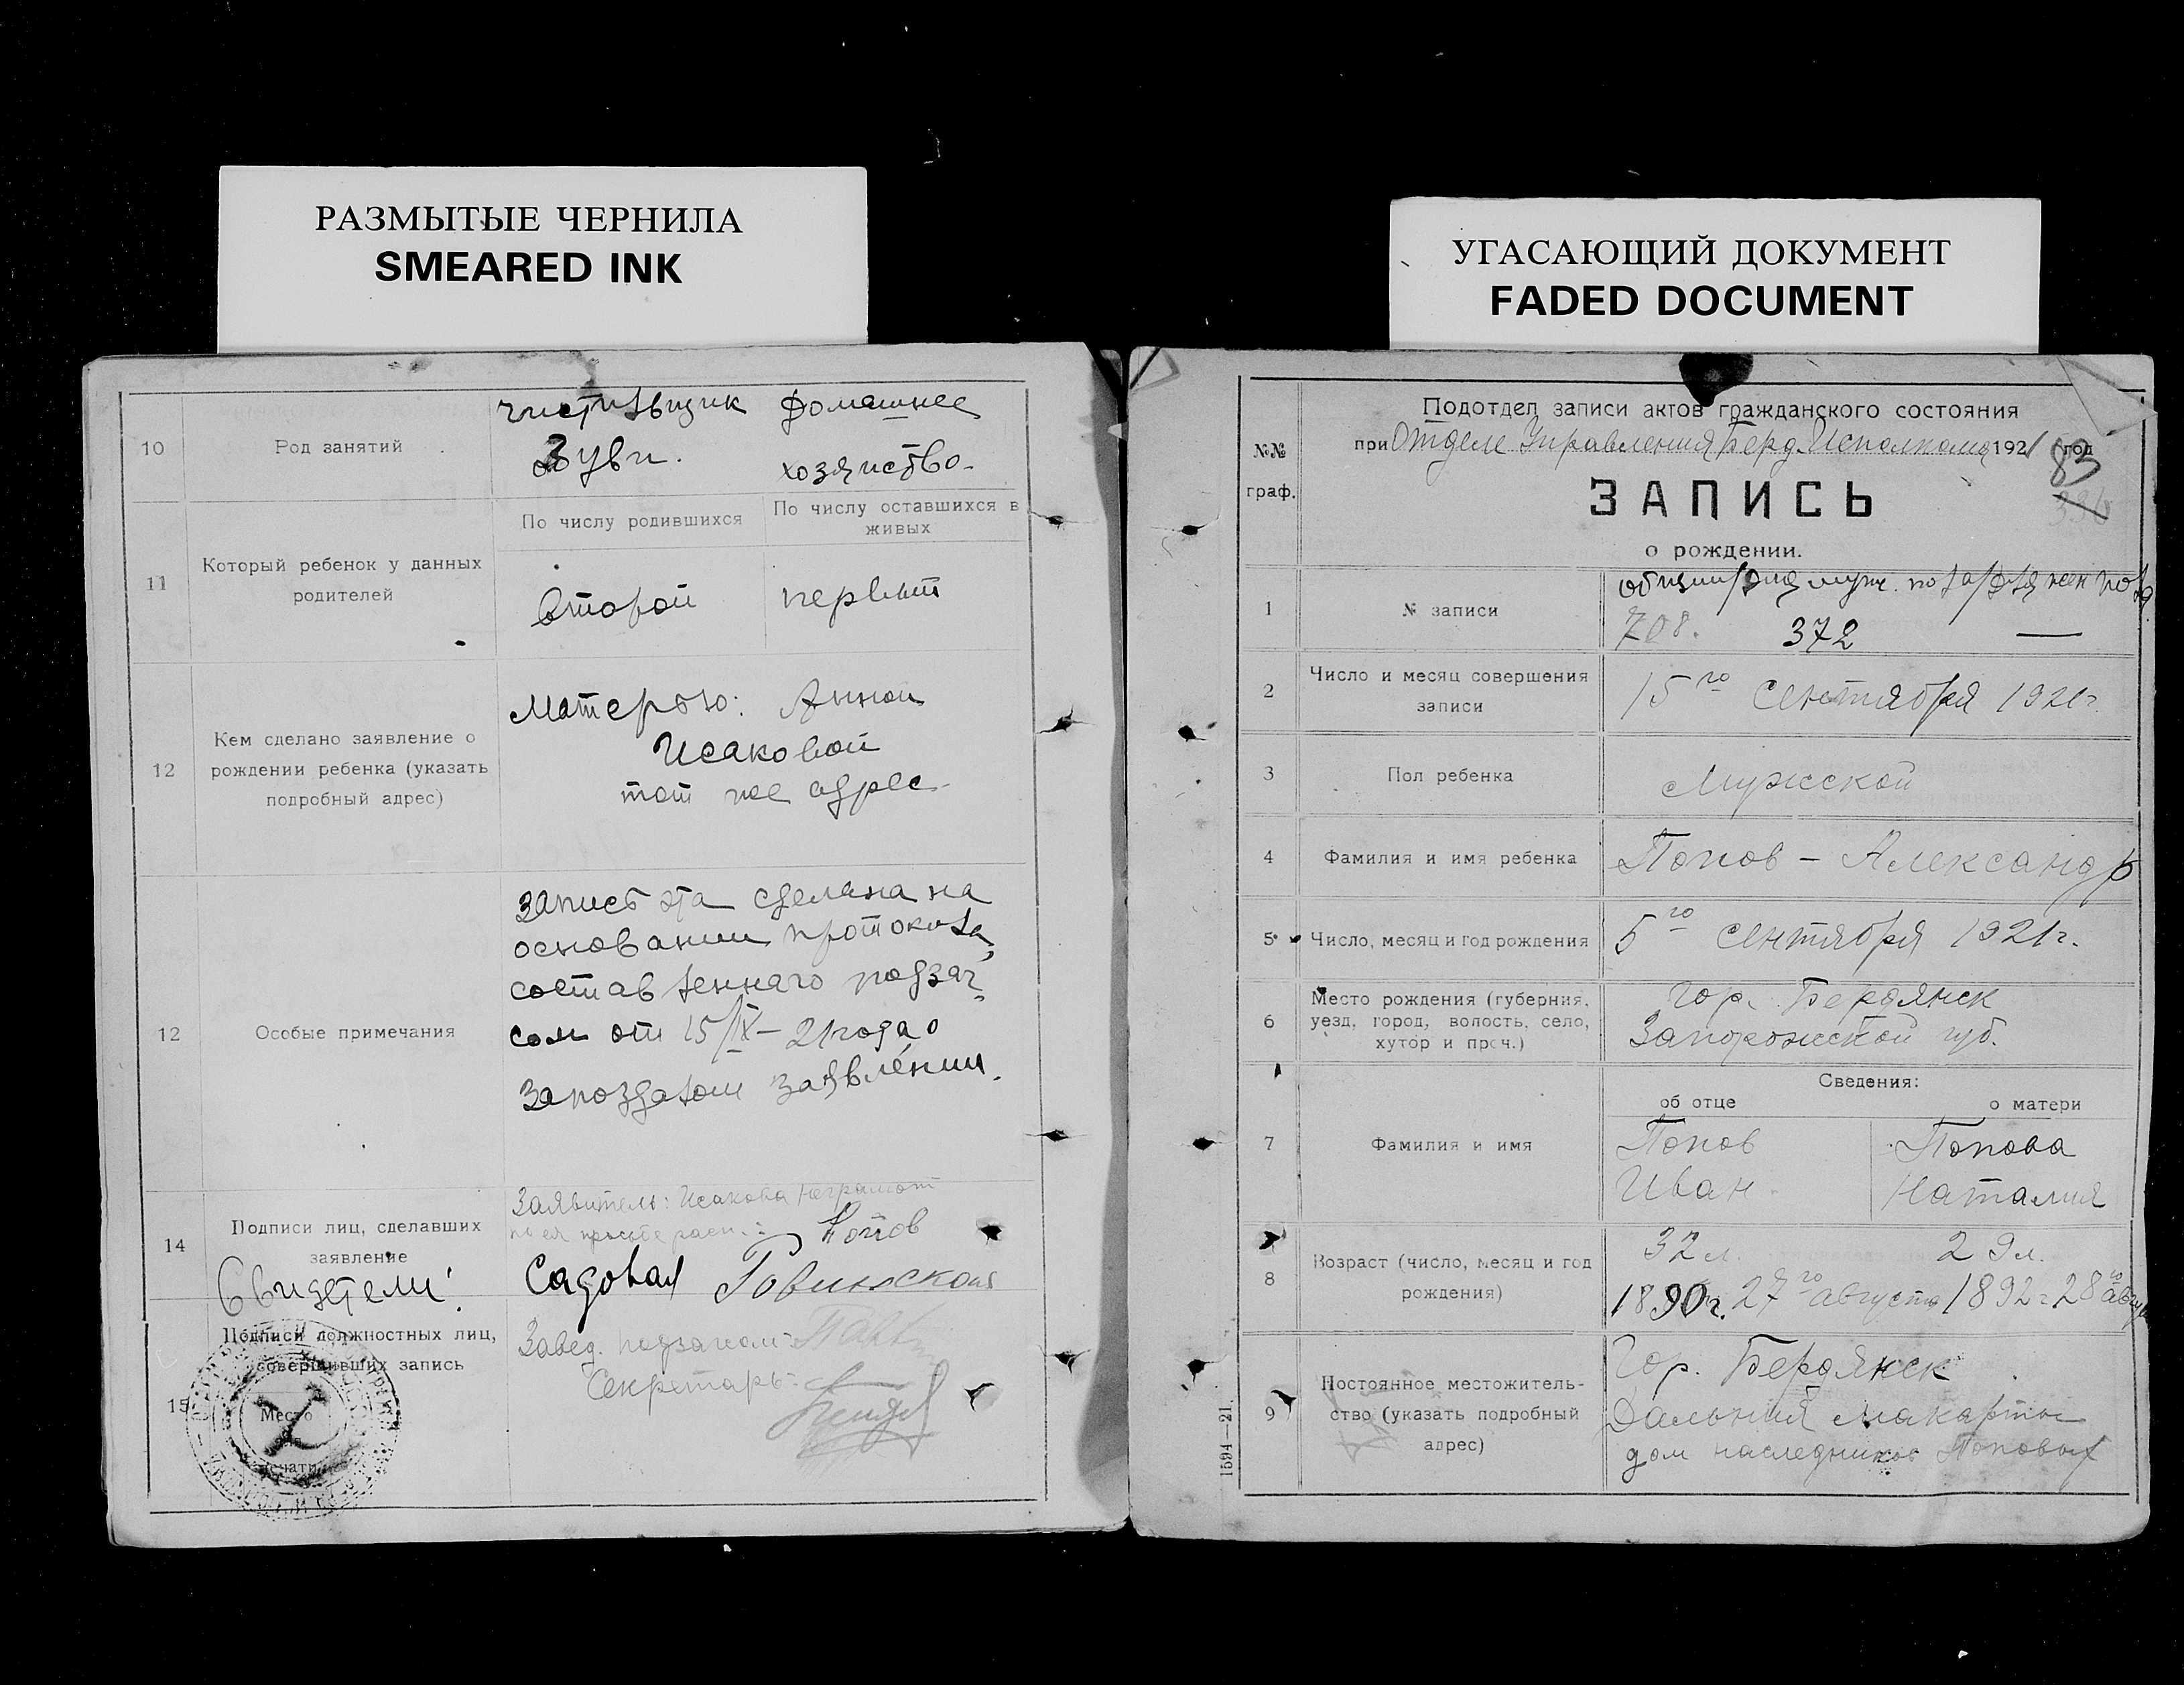 РАЗМЫТЫЕ ЧЕРНИЛА
SMEARED INK
10
Род занятий
чистильщик
обуви.
Домашнее
хозяйство
11
Который ребенок у данных
родителей
По числу родившихся
По числу оставшихся в
живых
второй
первый
12
Кем сделано заявление о
рождении ребенка (указать
подробный адрес)
Матерью: Анной
Исаковой
тот же адрес
12
Особые примечания
запись эта сделана на
основании протокола,
составленнаго подзаг
сом от 15/IX – 21 года о
запоздалом заявлении.
14
Подписи лиц, сделавших
заявление
Свидетели:
Заявитель: Исакова неграмот
по ея просьбе расп.: Попов
Садовая
15
Подписи должностных лиц,
совершивших запись
Место
печати
Завед. подзагсом
Секретарь
УГАСАЮЩИЙ ДОКУМЕНТ
FADED DOCUMENT
№№
граф.
Подотдел записи актов гражданского состояния
при Отделе Управления Берд. Исполкома 1921 год
83
336
ЗАПИСЬ
о рождении.
1
№ записи
общий для муж. пола для жен пола
708. 372 —
2
Число и месяц совершения
записи
15го Сентября 1921г.
3
Пол ребенка
Мужской
4
Фамилия и имя ребенка
Попов – Александр
5
Число, месяц и год рождения
5го Сентября 1921г.
6
Место рождения (губерния,
уезд, город, волость, село,
хутор и проч.)
Гор. Бердянск
Запорожской губ.
Сведения:
об отце
о матери
7
Фамилия и имя
Попов
Иван
Попова
Наталия
8
Возраст (число, месяц и год
рождения)
32 л.
1890г. 27го августа
29 л.
1892г 28го август
9
Постоянное местожитель-
ство (указать подробный
адрес)
Гор. Бердянск
Дальния Макорты
дом наследников Поповых
1594—21.